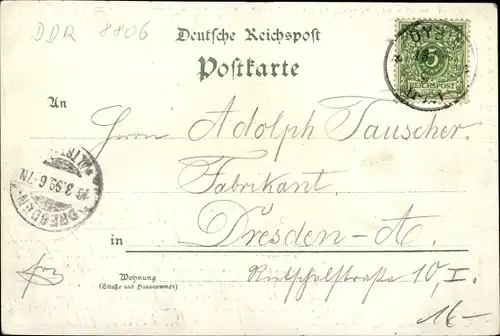 DDR 8806
Deutsche Reichspost
Postkarte
5
REICHSPOST
An
Herrn Adolph Tauscher.
Fabrikant.
in Dresden-A.
Wohnung
(Straße und Hausnummer)
Rietschelstraße 10, I.
DRESDEN
6-7N
16-